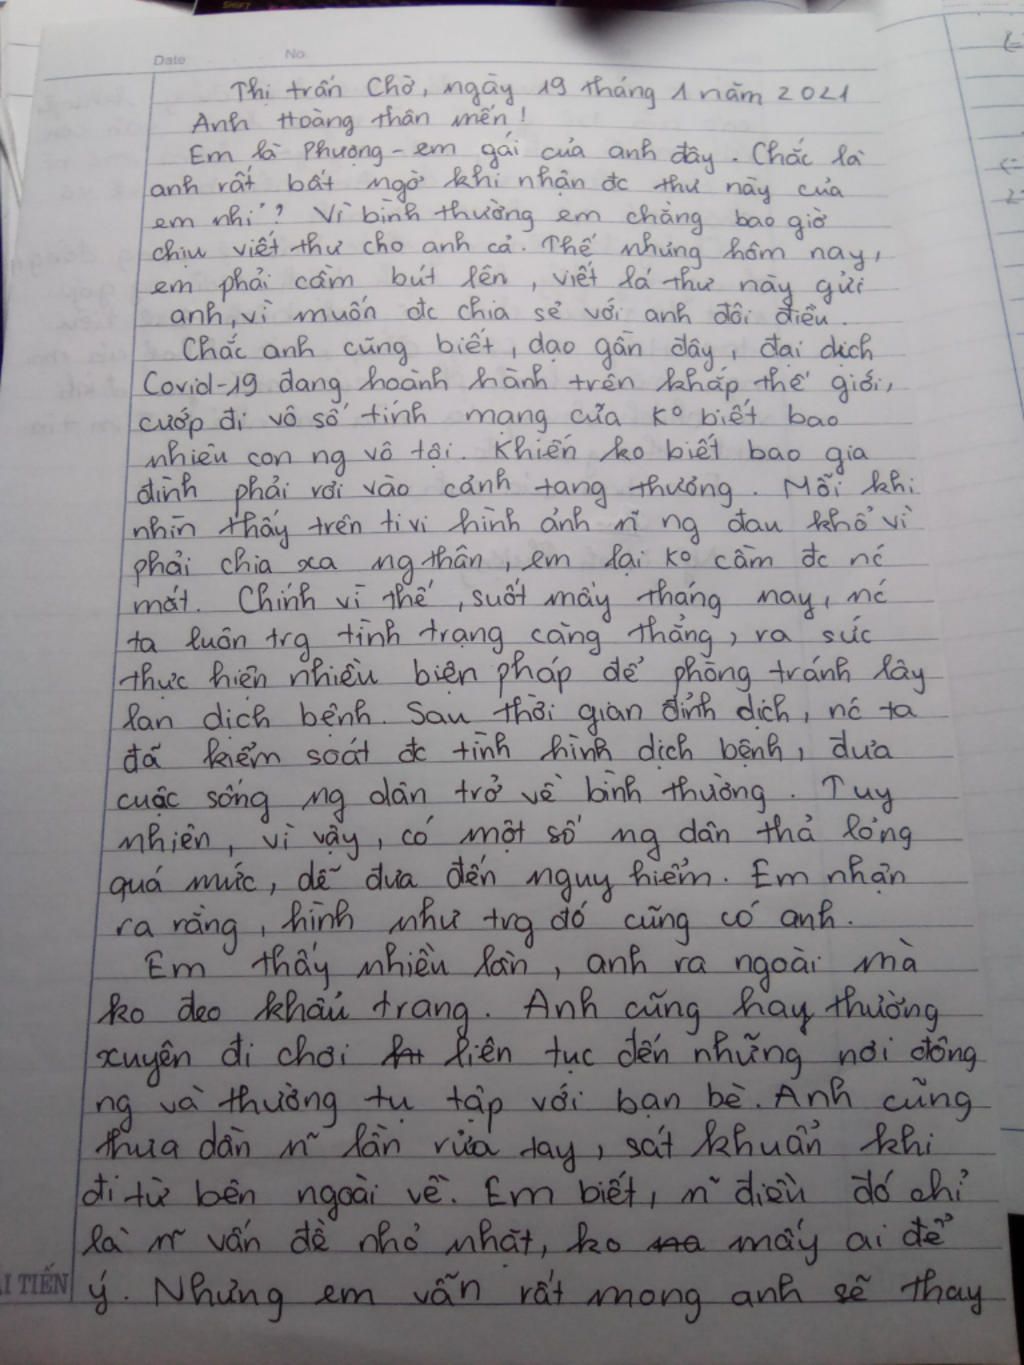 Date No
Thị trấn Chờ, ngày 19 tháng 1 năm 2021
Anh Hoàng thân mến!
Em là Phượng - em gái của anh đây. Chắc là
anh rất bất ngờ khi nhận đc thư này của
em nhỉ? Vì bình thường em chẳng bao giờ
chịu viết thư cho anh cả. Thế nhưng hôm nay,
em phải cầm bút lên, viết lá thư này gửi
anh, vì muốn đc chia sẻ với anh đôi điều.
Chắc anh cũng biết, dạo gần đây, đại dịch
Covid-19 đang hoành hành trên khắp thế giới,
cướp đi vô số tính mạng của ko biết bao
nhiêu con ng vô tội. Khiến ko biết bao gia
đình phải rơi vào cảnh tang thương. Mỗi khi
nhìn thấy trên ti vi hình ảnh n~ ng đau khổ vì
phải chia xa ng thân, em lại ko cầm đc nc
mắt. Chính vì thế, suốt mấy tháng nay, nc
ta luôn trg tình trạng căng thẳng, ra sức
thực hiện nhiều biện pháp để phòng tránh lây
lan dịch bệnh. Sau thời gian đỉnh dịch, nc ta
đã kiểm soát đc tình hình dịch bệnh, đưa
cuộc sống ng dân trở về bình thường. Tuy
nhiên, vì vậy, có một số ng dân thả lỏng
quá mức, dễ đưa đến nguy hiểm. Em nhận
ra rằng, hình như trg đó cũng có anh.
Em thấy nhiều lần, anh ra ngoài mà
ko đeo khẩu trang. Anh cũng hay thường
xuyên đi chơi liên tục đến những nơi đông
ng và thường tụ tập với bạn bè. Anh cũng
thưa dần n~ lần rửa tay, sát khuẩn khi
đi từ bên ngoài về. Em biết, n~ điều đó chỉ
là n~ vấn đề nhỏ nhặt, ko mấy ai để
ý. Nhưng em vẫn rất mong anh sẽ thay
TIẾN